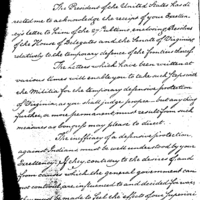 The President of the United States has di-
rected me to acknowledge the receipt of your Excellen-
cy's letter to him of the 27 Ultimo, enclosing Resolves
of the House of Delegates and the Senate of Virginia
relatively to the temporary defence of the frontiers thereof.
The Letters which have been written at
various times will enable you to take such
the Militia for the temporary defensive protection
of Virginia, as you shall judge proper — but any thing
further, a more permanent must result from such
measures as Congress may please to direct.
The inefficacy of a defensive protection
against Indians must be well understood by your
Excellency. If they, contrary to the desires of and
from causes which the general government can
not controul, are influenced to and decided for war,
must be made to feel the effects of our Superiori-